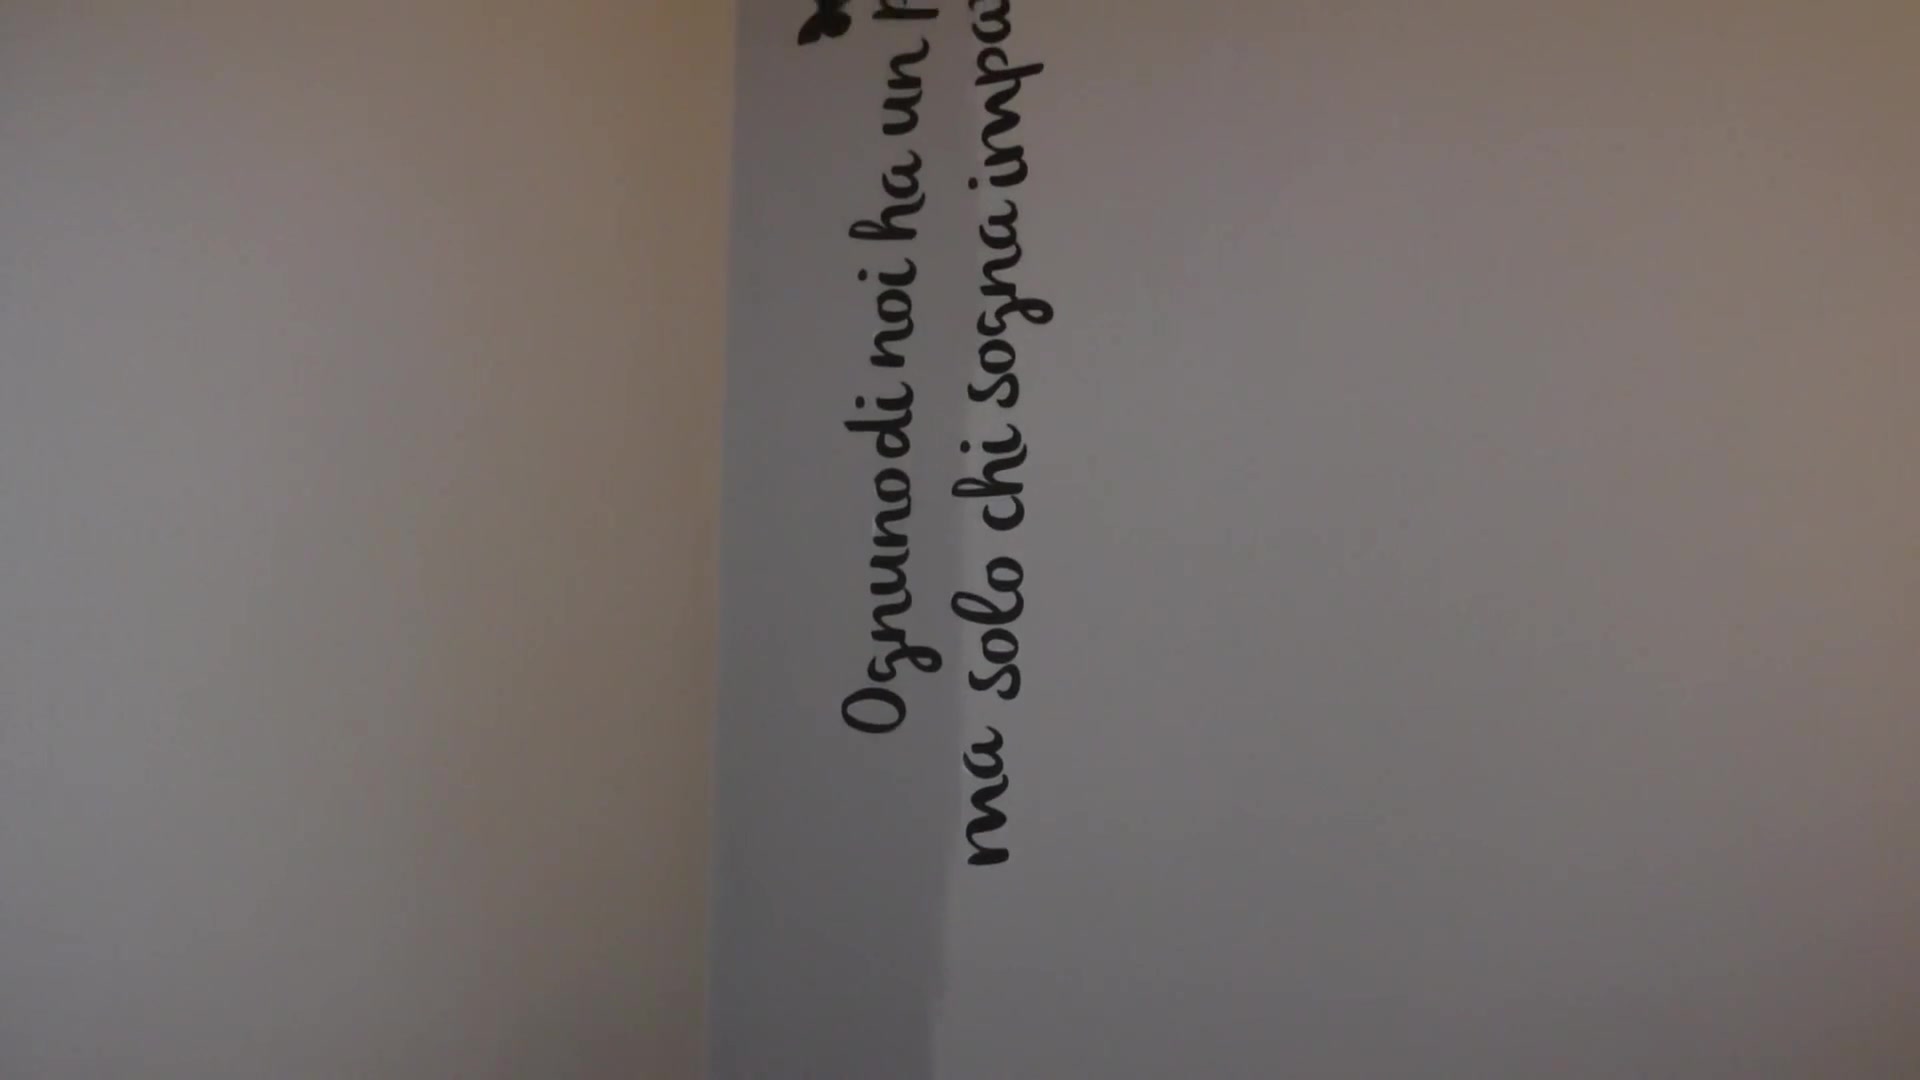 Ognuno di noi ha un
ma solo chi sogna